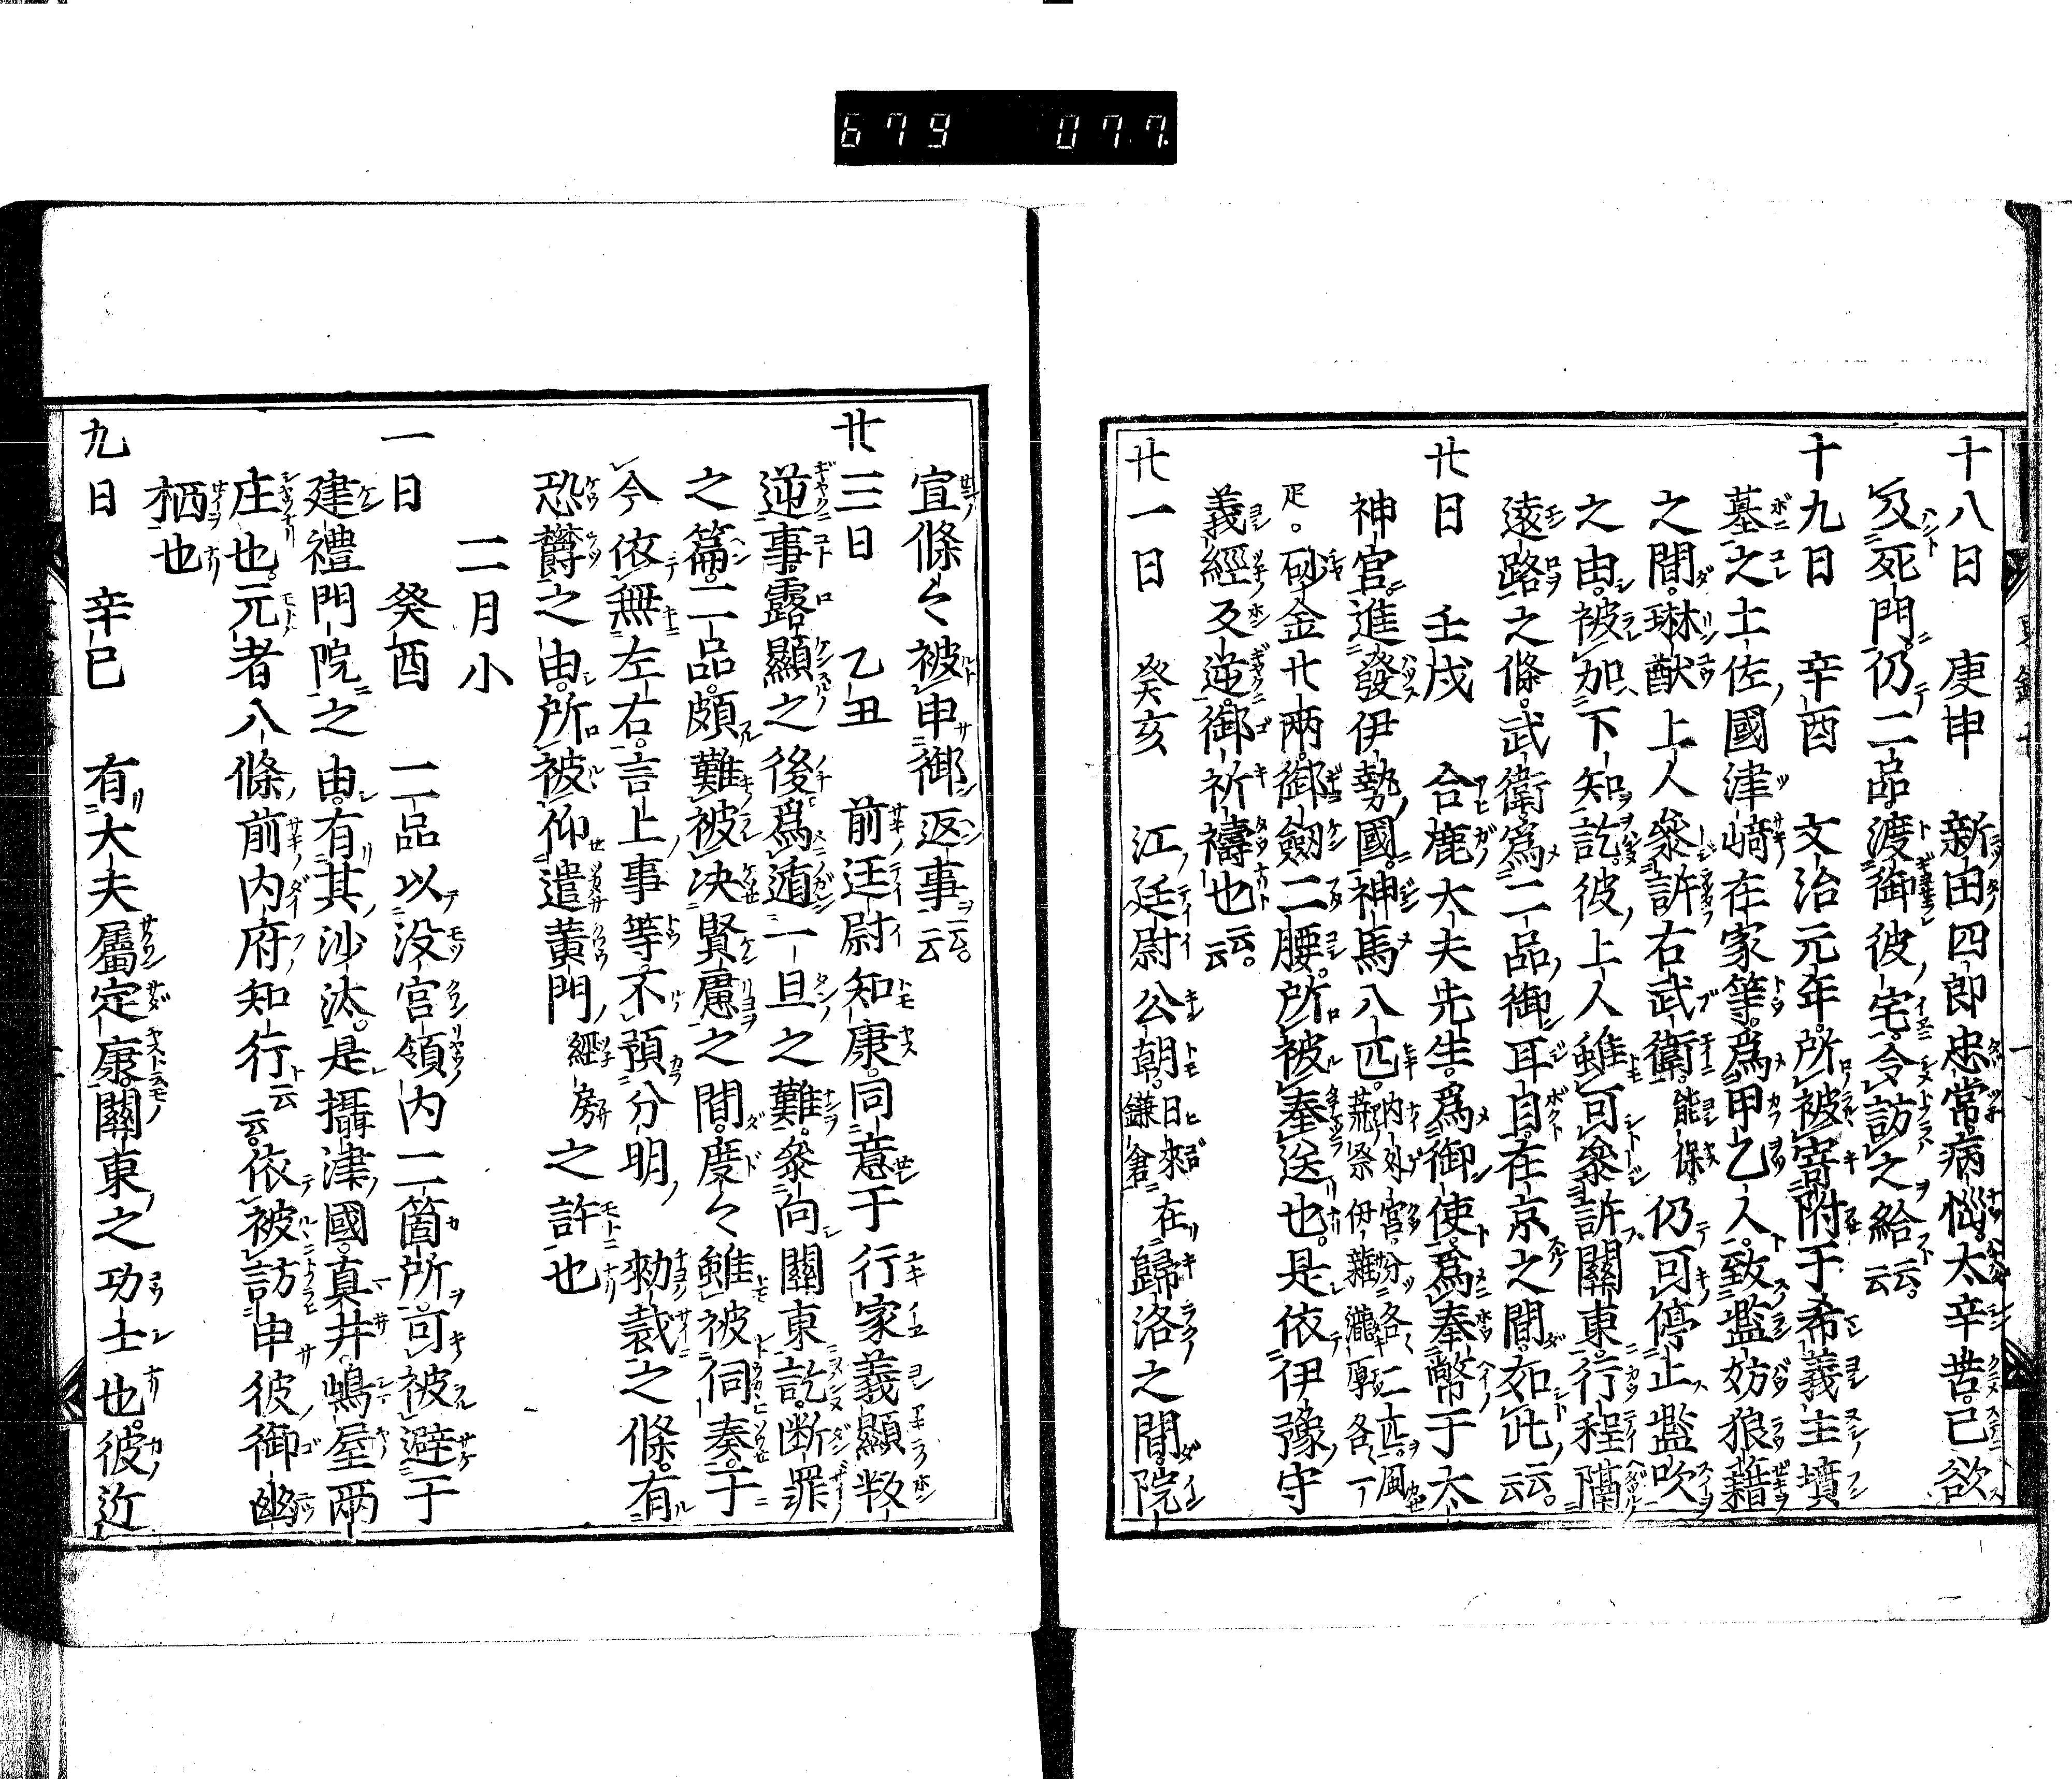 679 077.
十八日 庚申 新田四郎忠常病惱太辛苦已欲
及死門仍二品渡御彼宅令訪之給云云
十九日 辛酉 文治元年所被寄附于希義主墳
墓之土佐國津﨑在家等爲甲乙人致濫妨狼藉
之間琳猷上人參訴右武衛能保仍可停止濫吹
之由被加下知訖彼上人雖可參訴關東行程隔
遠路之條武衛爲二品御耳目在京之間如此云云
廿日 壬戌 合鹿大夫光生爲御使爲奉幣于太
神宮進發伊勢國神馬八匹內外宮分各二匹風荒祭伊雜瀧原各一
疋砂金廿兩御劔二腰所被奉送也是依伊豫守
義經反逆御祈禱也云云
廿一日 癸亥 江廷尉公朝日來在鎌倉歸洛之間院
宣條々被申御返事云云
廿三日 乙丑 前廷尉知康同意于行家義顯叛
逆事露顯之後爲遁一旦之難參向關東訖断罪
之篇二品頗難被决賢慮之間度々雖被伺奏于
今依無左右言上事等不預分明勑裁之條有
恐欝之由所被仰遣黃門經房之許也
二月小
一日 癸酉 二品以没官領内二箇所可被避于
建禮門院之由有其沙汰是攝津國真井嶋屋兩
庄也元者八條前内府知行云云依被訪申彼御幽
栖也
九日 辛巳 有大夫屬定康關東之功士也彼近